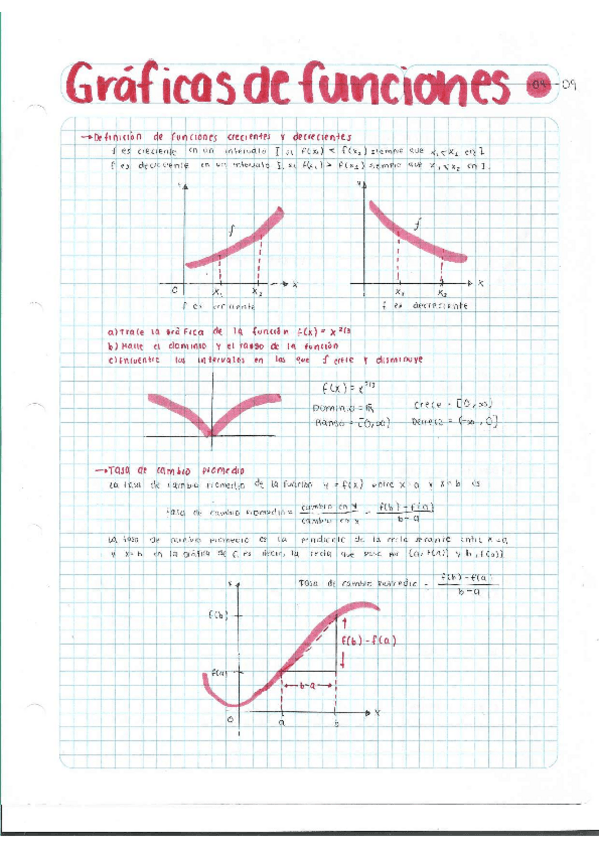 Gráficas de funciones 09-09
→Definición de funciones crecientes y decrecientes
f es creciente en un intervalo I si f(x₁) < f(x₂) siempre que x₁ < x₂ en I
f es decreciente en un intervalo I, si f(x₁) > f(x₂) siempre que x₁ < x₂ en I.
y f x 0 x₁ x₂
f es creciente
f x x₁ x₂
f es decreciente
a) Trace la gráfica de la función f(x) = x^2/3
b) Halle el dominio y el rango de la función
c) Encuentre los intervalos en los que f crece y disminuye
f(x) = x^2/3
Dominio = ℝ
Rango = [0, ∞)
Crece = [0, ∞)
= (-∞, 0]
→Tasa de cambio promedio
La tasa de cambio promedio de la función y = f(x) entre x = a y x = b es
Tasa de cambio promedio = cambio en y / cambio en x = f(b) - f(a) / b - a
La tasa de cambio promedio es la pendiente de la recta secante entre x = a
y x = b en la gráfica de f, es decir, la recta que pasa por (a, f(a)) y b, f(a))
Tasa de cambio promedio = f(b) - f(a) / b - a
f(b)
f(b) - f(a)
f(a)
b-a
0 a b x